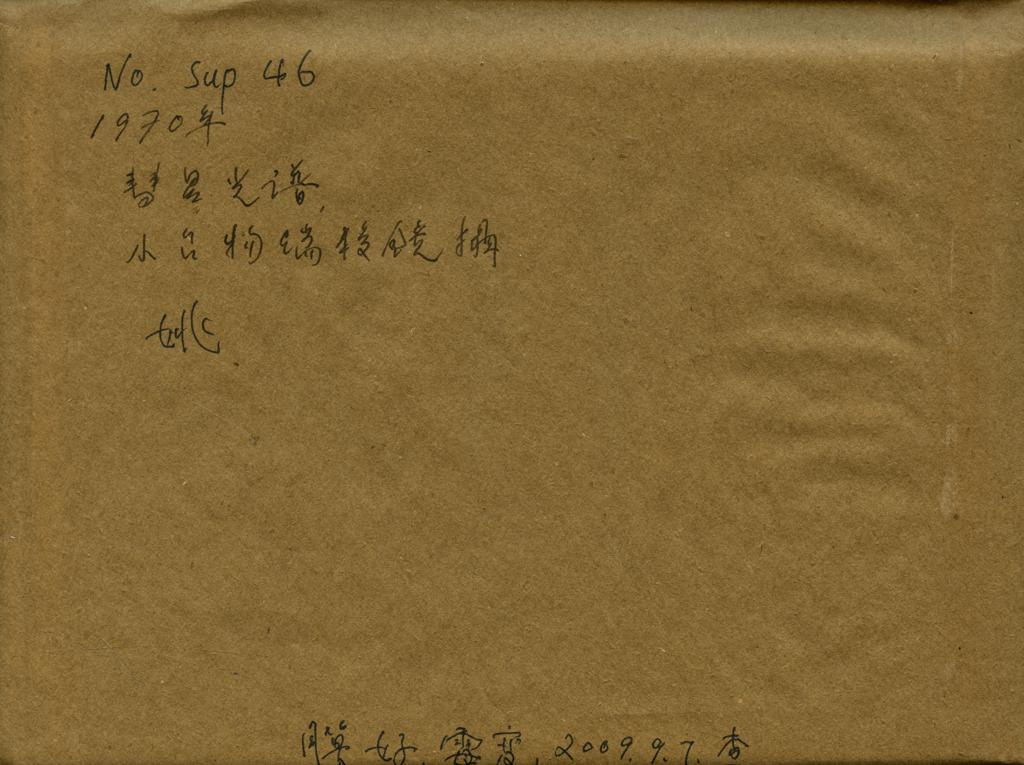 No. Sup 46
1970年
彗星光谱,
小台物端棱镜摄
姚
膜好, 霉变, 2009.9.7. 查